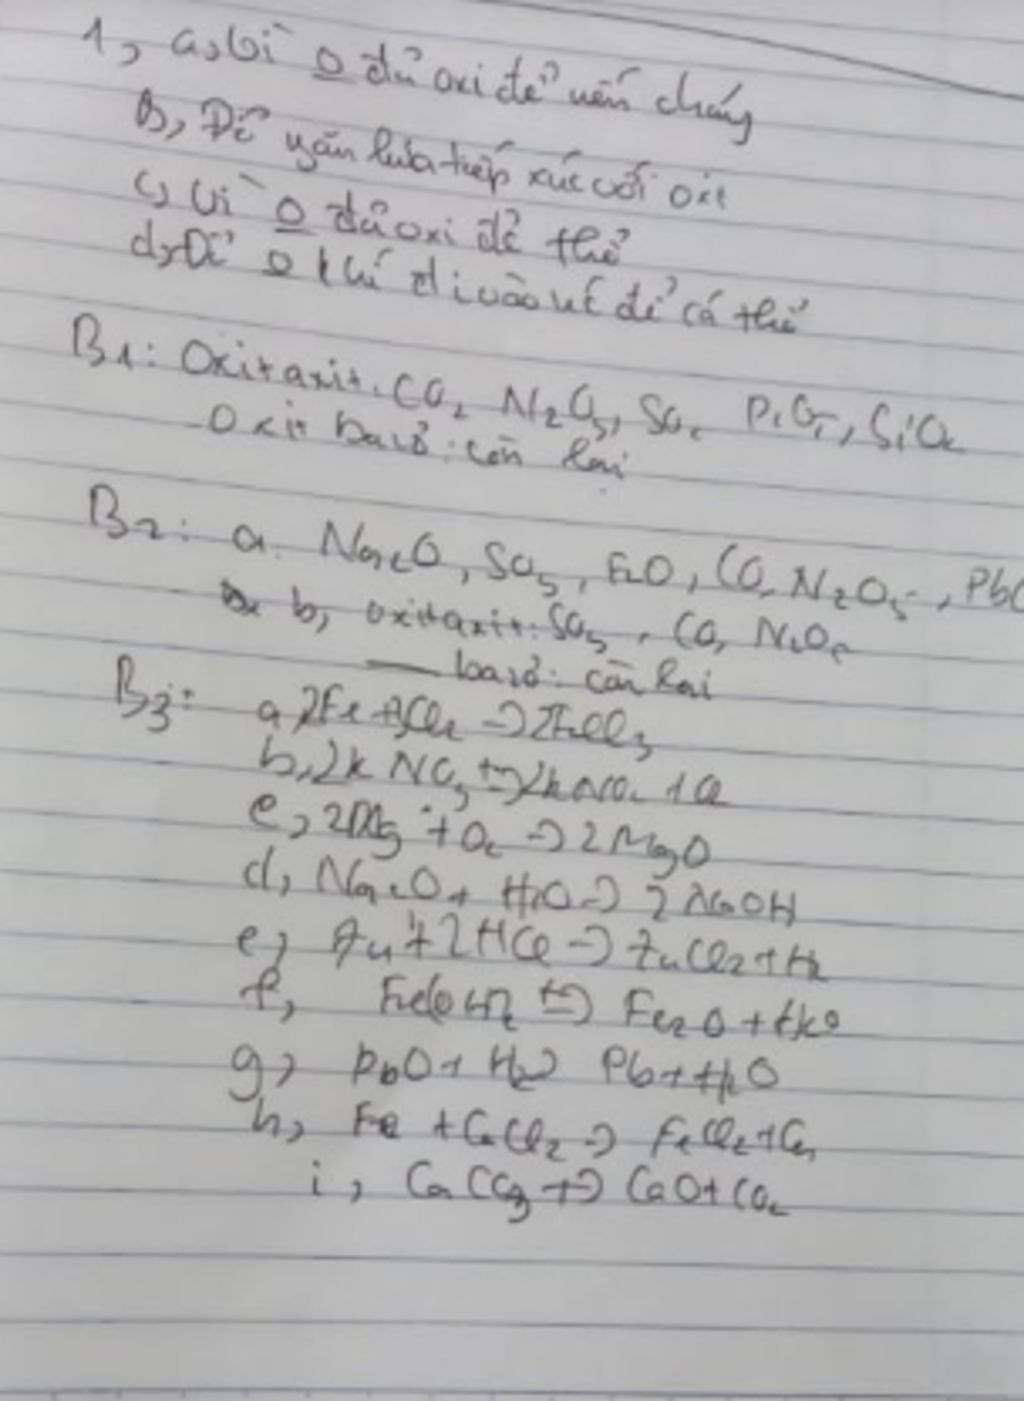 1, a, Vì o đủ oxi để nến cháy
B, Để ngăn lửa tiếp xúc với oxi
c, Vì o đủ oxi để thở
d, Để o khí đi vào để cá thở
B1: Oxit axit: CO2, N2O5, SO2, P2O5, SiO2
Oxit bazơ: còn lại
B2: a. Na2O, SO3, FeO, CO2, N2O5, PbO
b, oxit axit: SO3, CO2, N2O5
— bazơ: còn lại
B3: a, 2Fe + 3Cl2 → 2FeCl3
b, 2KNO3 → 2KNO2 + O2
c, 2Mg + O2 → 2MgO
d, Na2O + H2O → 2NaOH
e, Zn + 2HCl → ZnCl2 + H2
f, Fe(OH)2 → + H2O
g, PbO + H2 Pb + H2O
h, Fe + CuCl2 → FeCl2 + Cu
i, CaCO3 → CaO + CO2